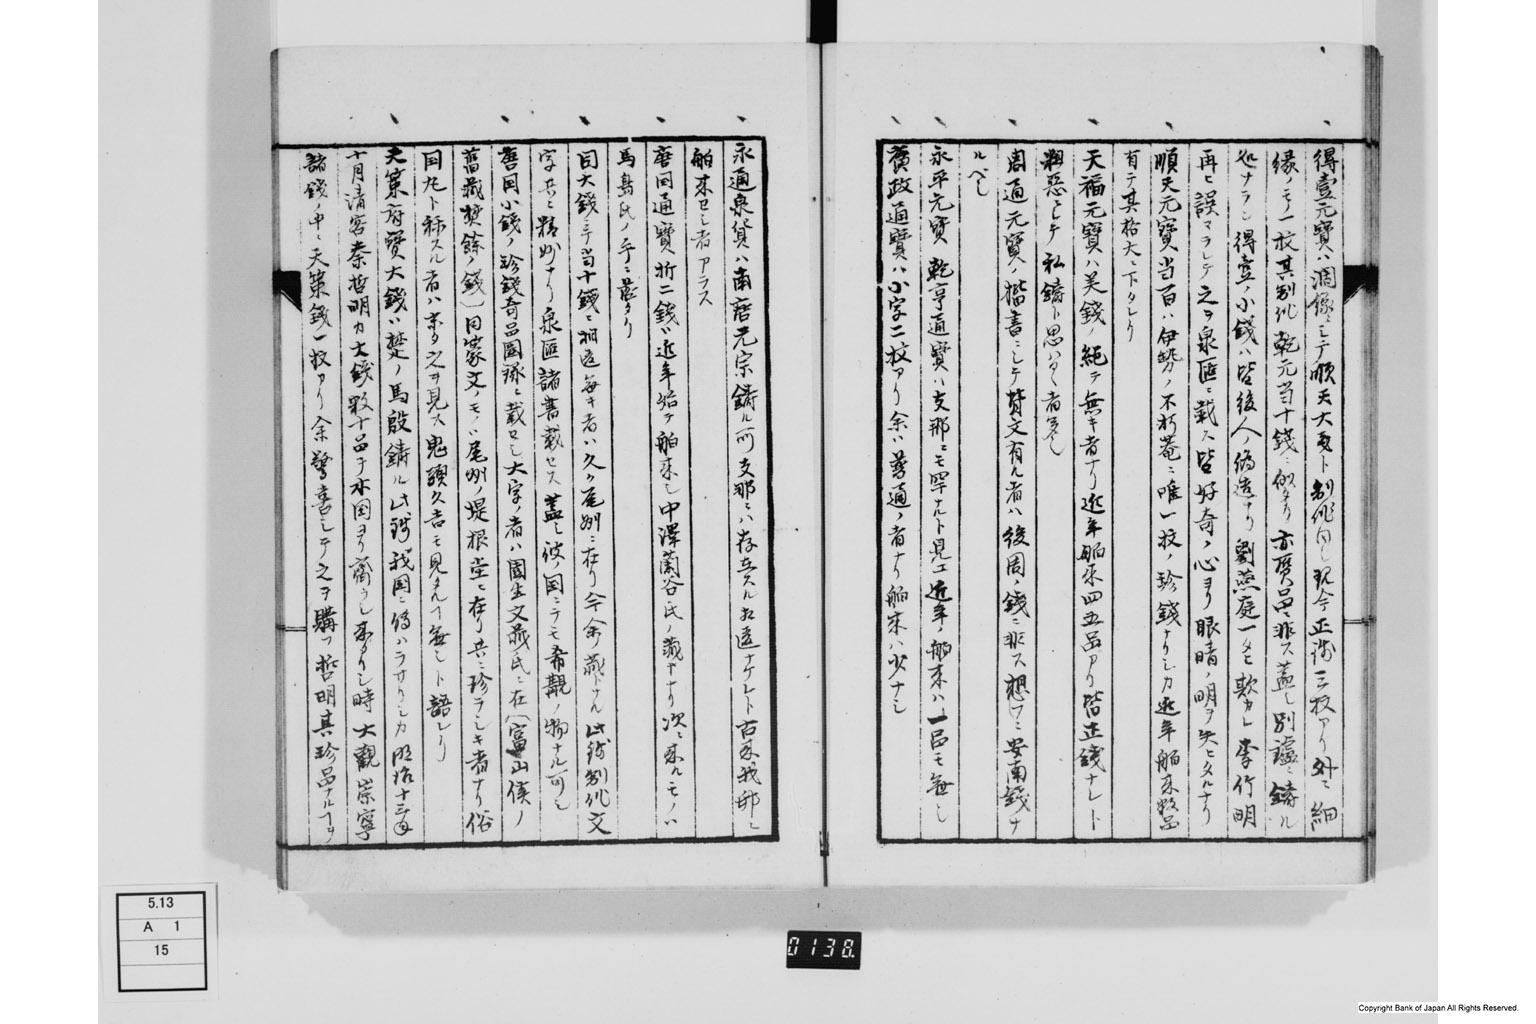 得壹元寶ハ濶縁ニシテ順天大頁ト制作同シ現今正銭三枚アリ外ニ細
縁ノモノ一枚其制作乾元当十錢ニ似タリ亦贋品ニ非ス蓋シ別爐ニ鋳ル
処ナラン得壹ノ小錢ハ皆後人ノ偽造ナリ劉燕庭一タヒ欺カレ李竹明
再ヒ誤マラレテ之ヲ泉匯ニ載ス皆好奇ノ心ヨリ眼睛ノ明ヲ失ヒタルナリ
順天元寶当百ハ伊勢ノ不朽菴ニ唯一枚ノ珍錢ナリシカ近年舶来数品
有テ其格大ニ下タレリ
天福元寶ハ美錢ノ絶テ無キ者ナリ近年舶来四五品アリ皆正錢ナレト
粗惡ニシテ私鋳ト思ハルヽ者多シ
周通元寶ノ楷書ニシテ背文有ル者ハ後周ノ錢ニ非ス想フニ安南錢ナ
ルベシ
永平元寶 乾亨通寶ハ支那ニモ罕ナルト見エ近年ノ舶来ハ一品モ無シ
廣政通寶ハ小字二枚アリ余ハ普通ノ者ナリ舶来ハ少ナシ
永通泉貨ハ南唐元宗鋳ル所支那ニハ存在スル相違ナケレト古来我邦ニ
舶来セシ者アラス
唐国通寶折二錢ハ近年始テ舶来シ中澤蘭谷氏ノ蔵ナリ次ニ来ルモノハ
馬島氏ノ手ニ落タリ
同大錢ニテ当十錢ニ相違無キ者ハ久ク尾州ニ在リ今余蔵トナル此銭制作文
字共ニ精妙ナリ泉匯諸書載セス蓋シ彼ノ国ニテモ希覯ノ物ナル可シ
唐国小錢ノ珍錢奇品圖録ニ載セシ大字ノ者ハ園生文蔵氏ニ在(富山侯ノ
舊蔵焚餘ノ錢)同篆文ノモノハ尾州ノ堤根堂ニ在リ共ニ珍ラシキ者ナリ俗
同九ト称スル者ハ未タ之ヲ見ス鬼頭久吉モ見タルヿ無シト語レリ
天策府寶大錢ハ楚ノ馬殷鋳ル此銭我国ニ傳ハラサリシカ明治十三年
十月清客秦哲明カ大錢數十品ヲ本国ヨリ齎ラシ来タリシ時大觀崇寧
諸錢ノ中ニ天策錢一枚アリ余驚喜シテ之ヲ購フ哲明其珍品ナルヿヲ
5.13
A 1
15
0138.
Copyright Bank of Japan All Rights Reserved.